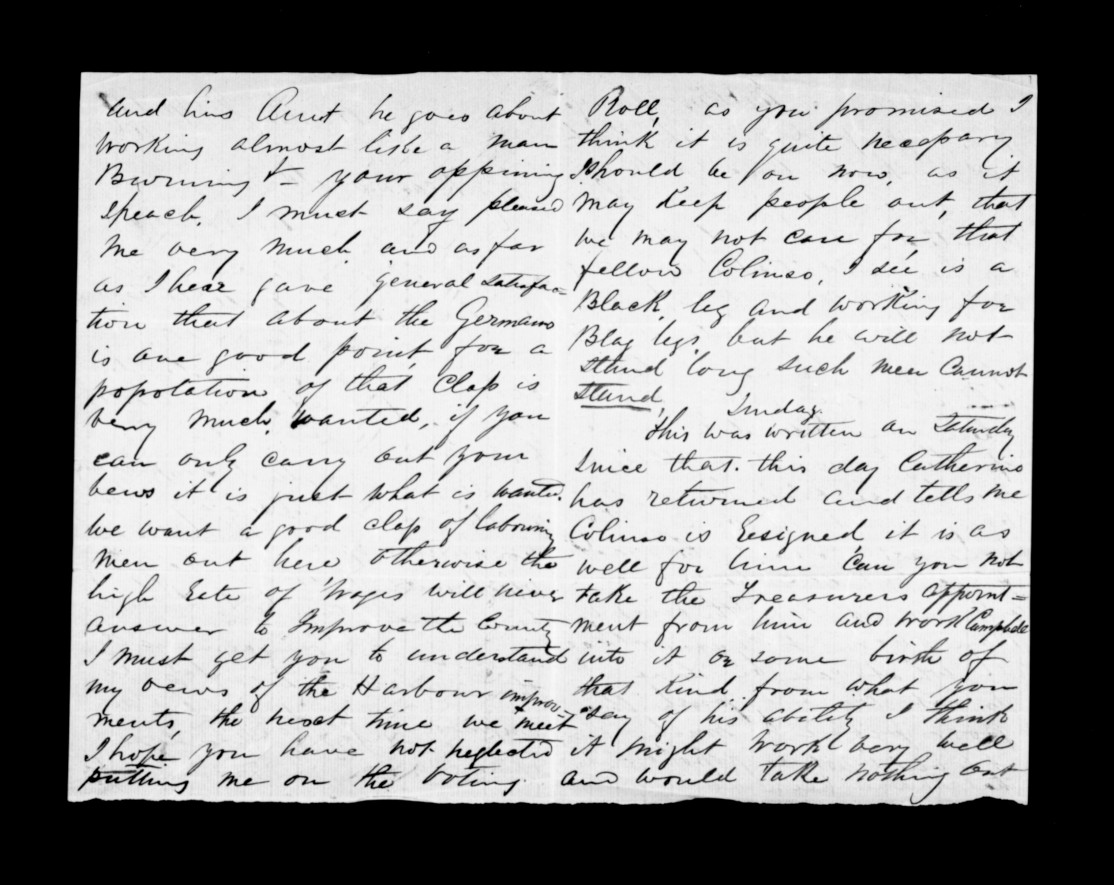 and his Aunt he goes about
working almost like a man
Burning &c your oppining
speach, I must say pleased
me very much and as far
as I hear gave general satisfac=
tion that about the Germans
is one good point, for a
popolation of that class is
very much, wanted, if you
can only carry out your
vews it is just what is wanted.
we want a good class of labouring
men out here otherwise the
high Rate of Wages will never
answer to Improve the Country
I must get you to understand
my vews of the Harbour improv-
ments, the next time we meet
I hope you have not neglected
putting me on the voting
Roll, as you promised I
think it is quite necessary
I should be on now, as it
may keep people out, that
we may not care for, that
fellow Colinso, I see is a
Black, leg and working for
Blag legs, but he will not
stand long such men cannot
stand,
Sunday
This was written on Saturday
Since that. this day Catherine
has returned and tells me
Colinso is Resigned it is as
well for him can you not
take the Treasurers appoint=
ment from him and work Campbell
into it or some birth of
that kind from what you
say of his ability I think
it might work very well
and would take nothing out